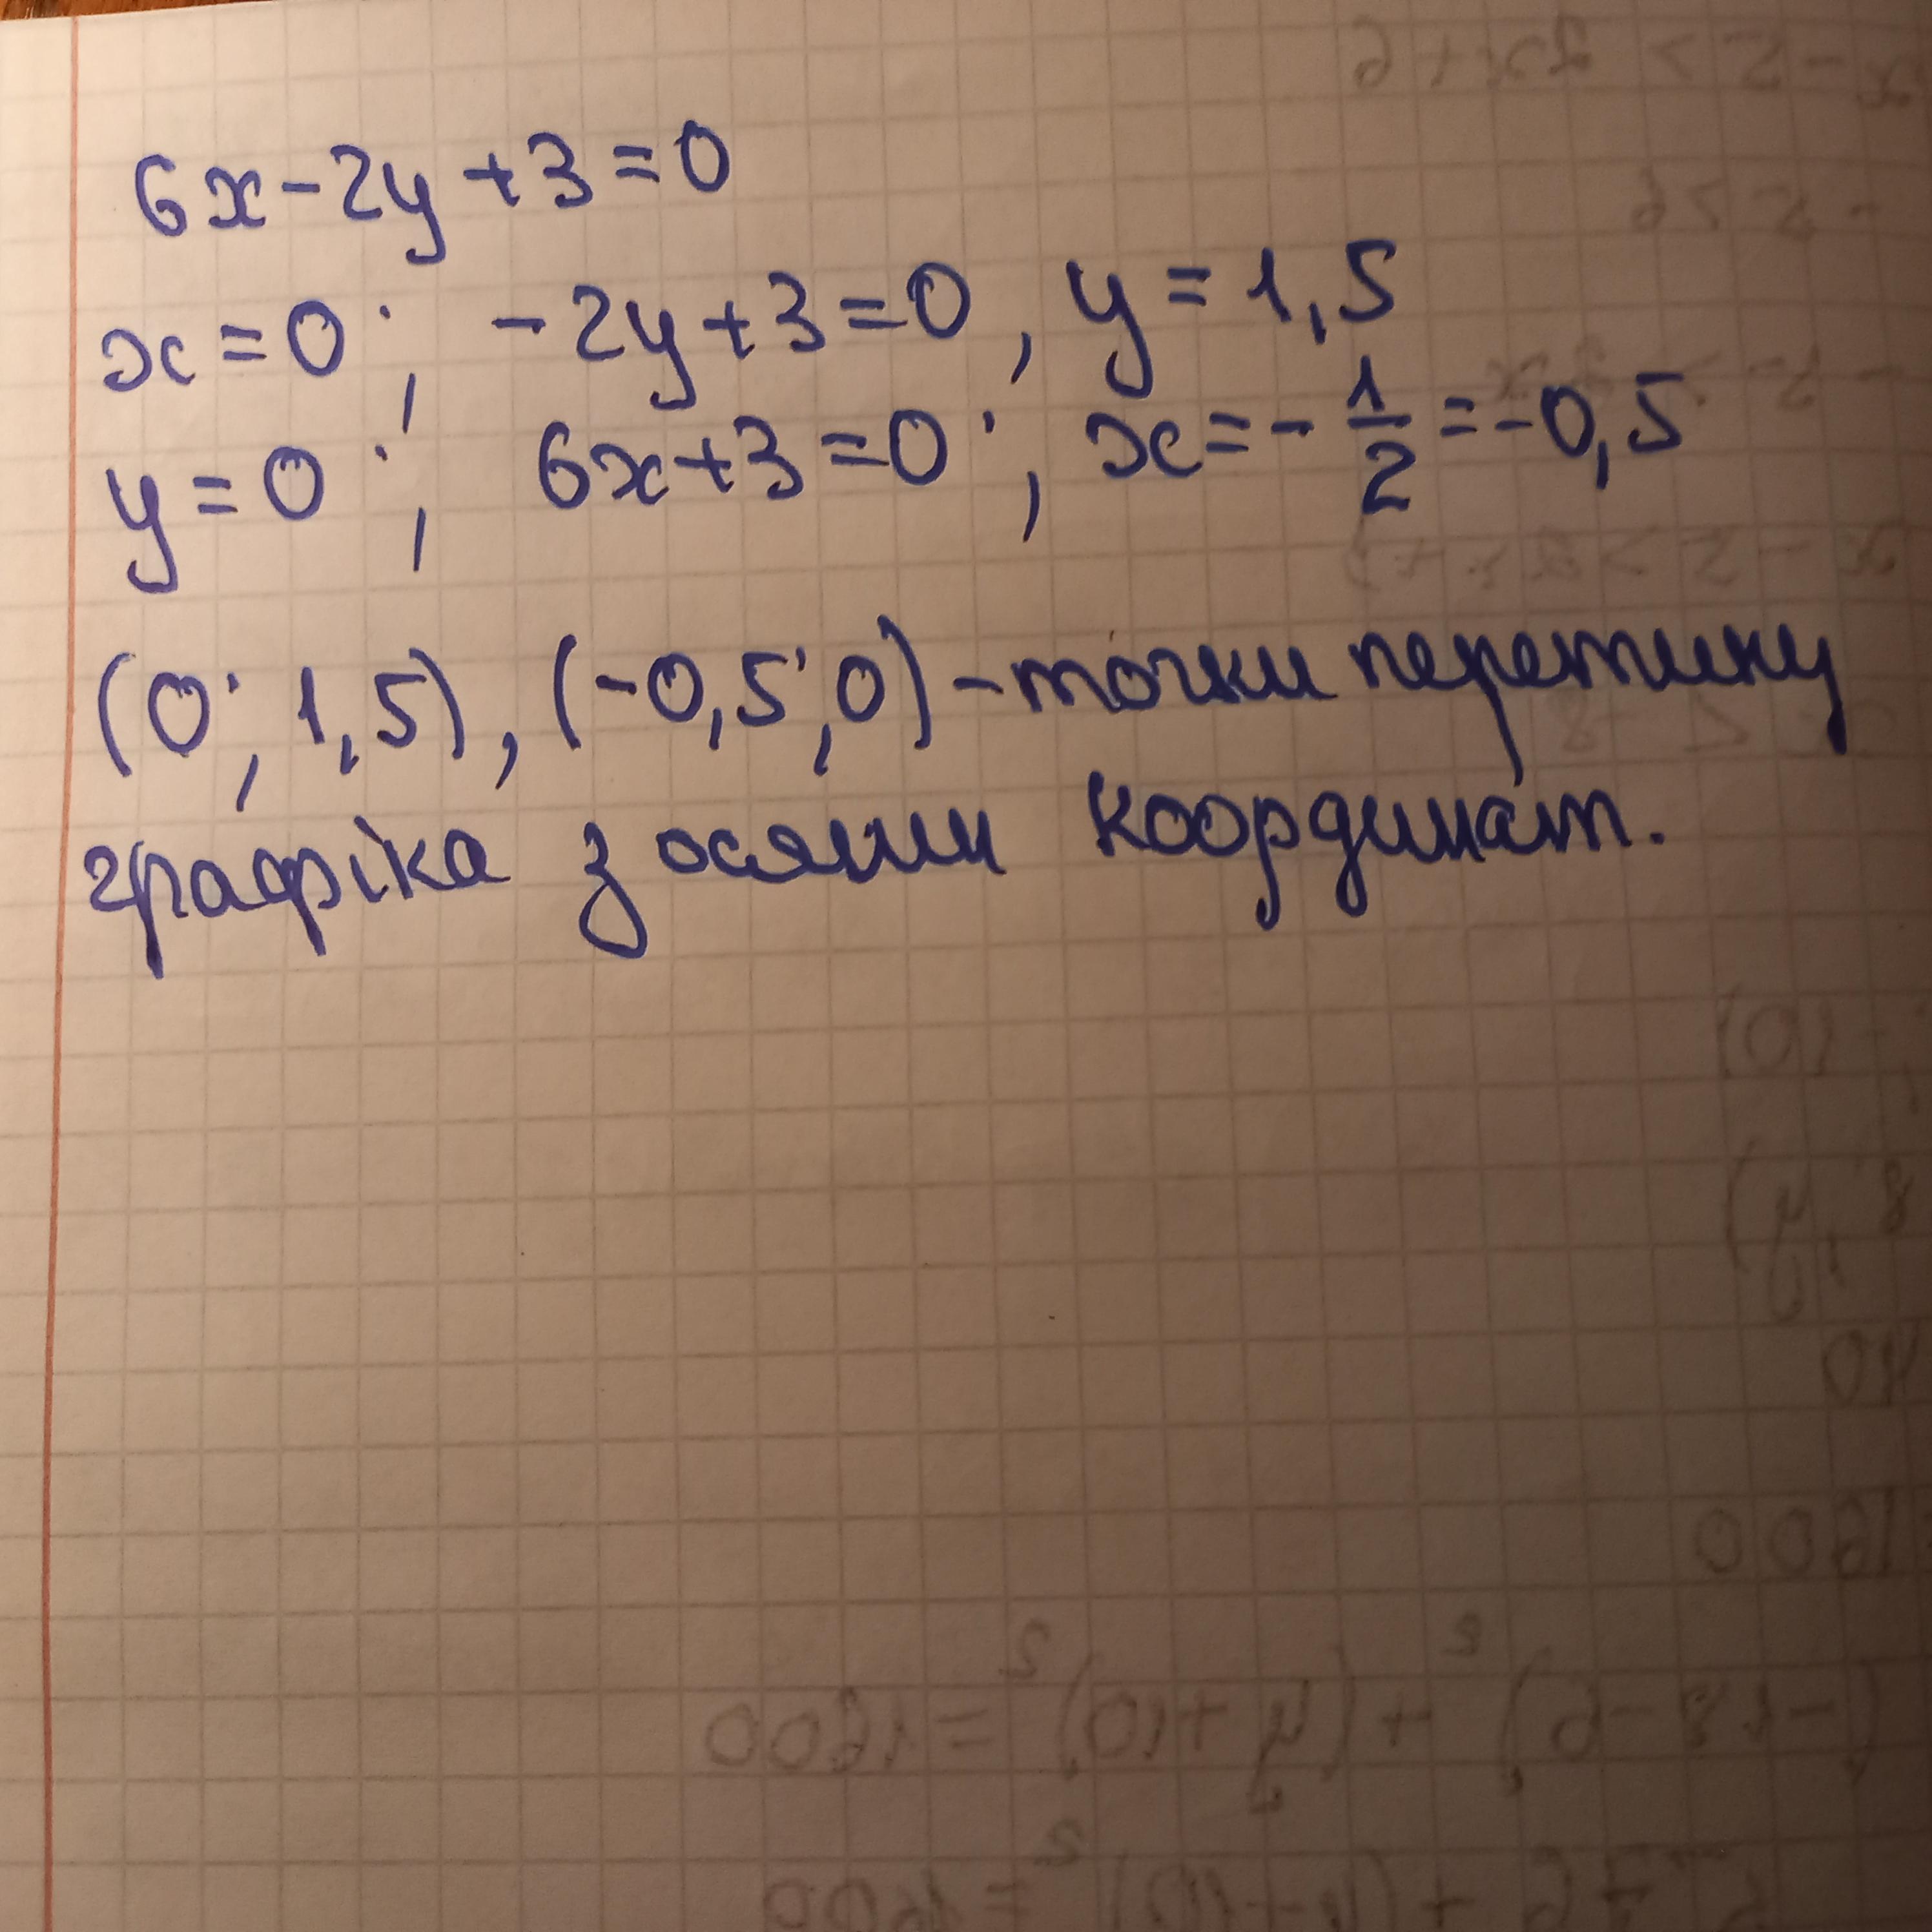 6x-2y+3=0
x=0; -2y+3=0, y=1,5
y=0; 6x+3=0; x=-1/2=-0,5
(0; 1,5), (-0,5;0)-точки перетину
графіка з осями координат.